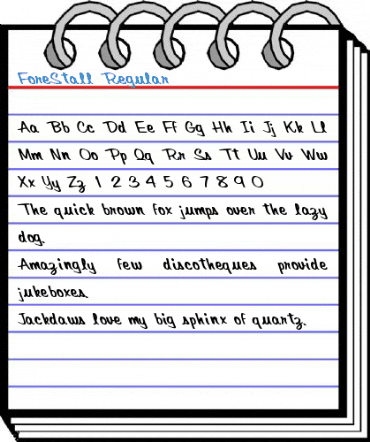 ForeStall Regular
Aa Bb Cc Dd Ee Ff Gg Hh Ii Jj Kk Ll
Mm Nn Oo Pp Qq Rr Ss Tt Uu Vv Ww
Xx Yy Zz 1 2 3 4 5 6 7 8 9 0
The quick brown fox jumps over the lazy
dog.
Amazingly few discotheques provide
jukeboxes.
Jackdaws love my big sphinx of quartz.